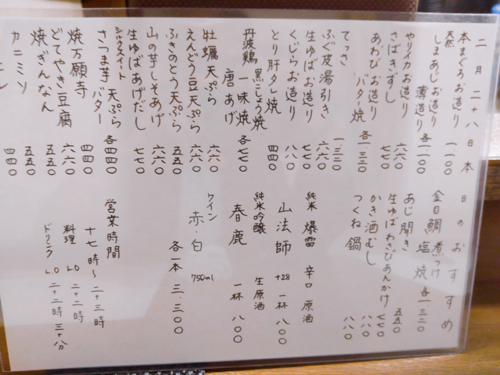 二月二十八日 本日のおすすめ
天然
本まぐろお造り 一一〇〇
しまあじお造り
薄造り 各一一〇〇
やりイカお造り 六六〇
さばきずし 七七〇
あわびお造り
バター焼 各一三二〇
てっさ 一三二〇
ふぐ皮湯引き 六六〇
生ゆばお造り 七七〇
くじらお造り 八八〇
とり肝タレ焼 四四〇
丹波鶏 黒こしょう焼
一味焼 各七七〇
唐あげ
牡蠣天ぷら 六六〇
えんどう豆天ぷら 六六〇
ふきのとう天ぷら 五五〇
山の芋しそあげ 六六〇
生ゆばあげだし 七七〇
シルクスイート
さつま芋 天ぷら
バター 各四四〇
焼万願寺 四四〇
どてやき豆腐 六六〇
焼ぎんなん 五五〇
カニミソ 四四〇
金目鯛 煮つけ
塩焼 各一三二〇
あじ開き 五五〇
生ゆばわさびあんかけ 七七〇
かき酒むし 八八〇
つくね鍋 八八〇
純米 爆雷 辛口 原酒
山法師 +28 一杯 八〇〇
純米吟醸 生原酒
春鹿 一杯 八〇〇
ワイン 750ml
赤・白 各一本 三.三〇〇
営業時間
十七時~二十三時
料理 L.O 二十二時
ドリンク L.O 二十二時三十分